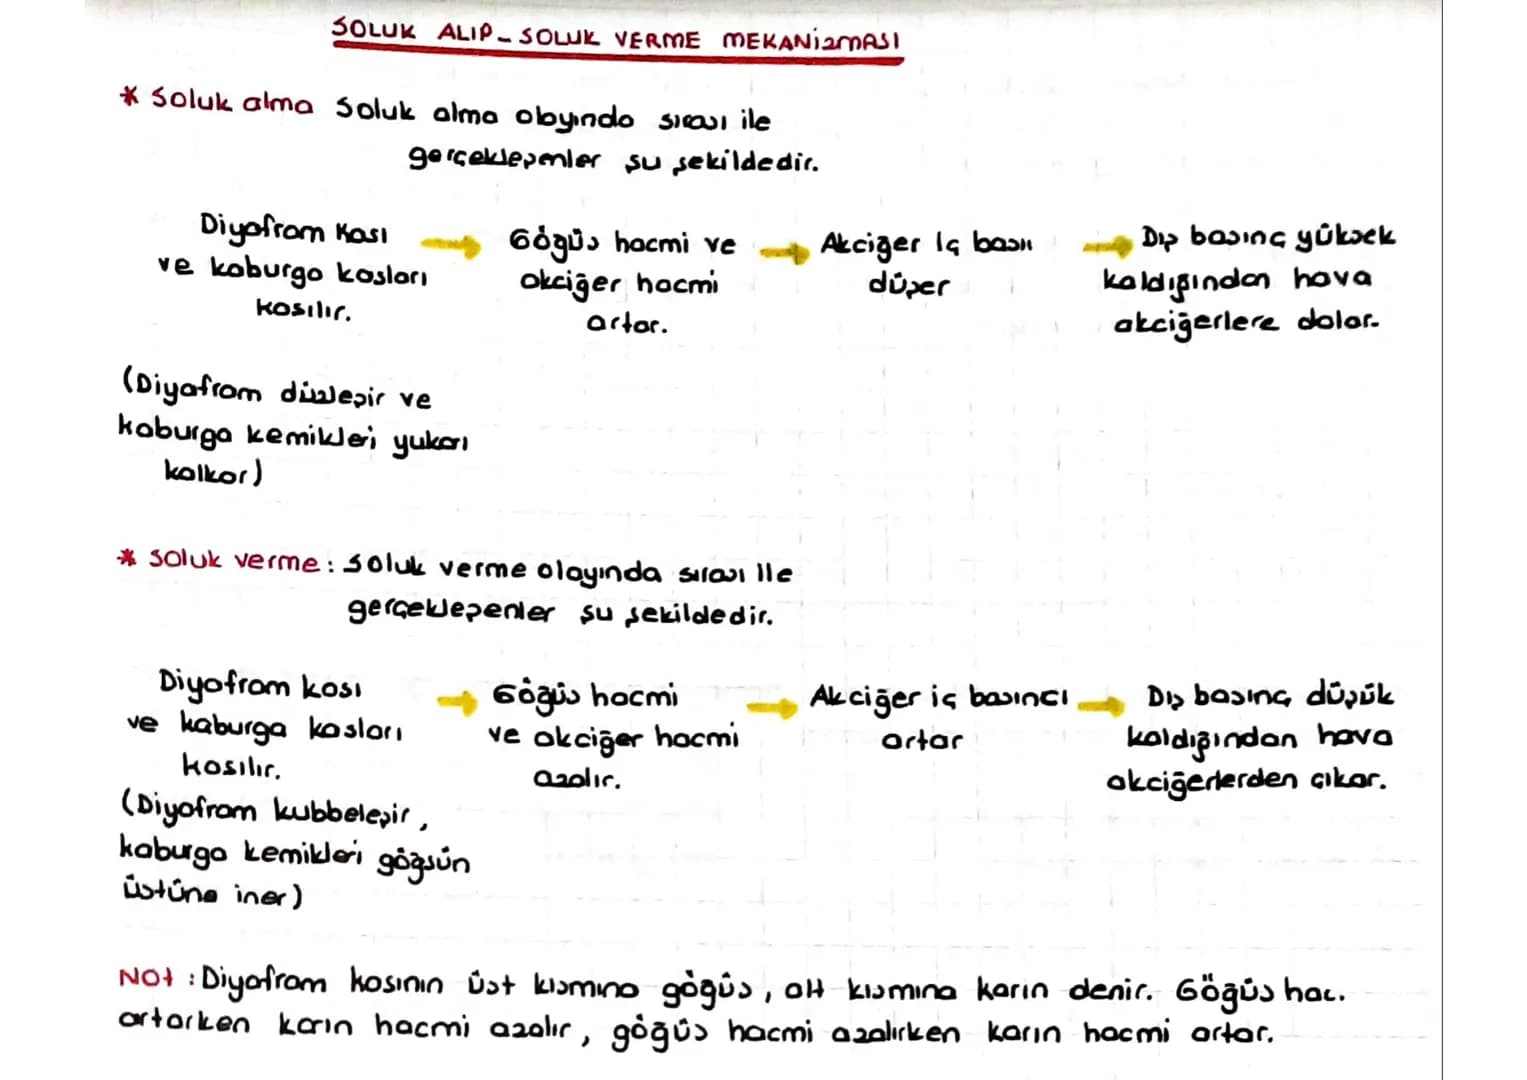 SOLUK ALIP-SOLUK VERME MEKANİZMASI
* Soluk alma Soluk alma olayında sırası ile
gerçekleşenler şu şekildedir.
Diyafram Kası → Göğüs hacmi ve → Akciğer Iç basın → Dış basınç yüksek
ve kaburga kasları akciğer hacmi düşer kaldığından hava
kasılır. artar. akciğerlere dolar.
(Diyafram düzleşir ve
kaburga kemikleri yukarı
kalkar)
* Soluk verme: Soluk verme olayında sırası Ile
gerçekleşenler şu şekildedir.
Diyafram kası → Göğüs hacmi → Akciğer iç basıncı → Dış basınç düşük
ve kaburga kasları ve akciğer hacmi artar kaldığından hava
kasılır. azalır. akciğerlerden çıkar.
(Diyafram kubbeleşir,
kaburga kemikleri göğsün
üstüne iner)
NOT : Diyafram kasının üst kısmına göğüs, alt kısmına karın denir. Göğüs hac.
artarken karın hacmi azalır, göğüs hacmi azalırken karın hacmi artar.